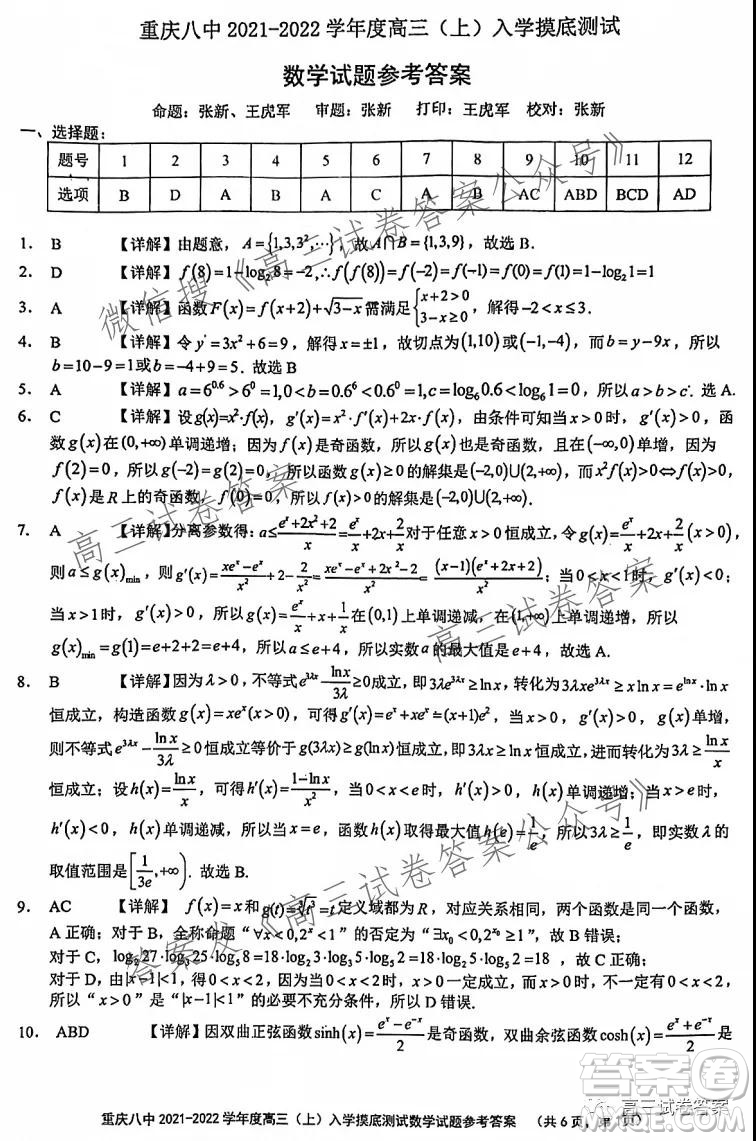 重庆八中 2021-2022 学年度高三（上）入学摸底测试
数学试题参考答案
命题：张新、王虎军 审题：张新 打印：王虎军 校对：张新
一、选择题：
题号 1 2 3 4 5 6 7 8 9 10 11 12
选项 B D A B A C A B AC ABD BCD AD
1. B 【详解】由题意，A={1,3,3²,⋯}，故A∩B={1,3,9}，故选B.
2. D 【详解】f(8)=1−log₂8=−2,∴f(f(8))=f(−2)=f(−1)=f(0)=f(1)=1−log₂1=1
3. A 【详解】函数F(x)=f(x+2)+√(3−x)需满足{x+2>0, 3−x≥0，解得−2<x≤3.
4. B 【详解】令y′=3x²+6=9，解得x=±1，故切点为(1,10)或(−1,−4)，而b=y−9x，所以
b=10−9=1或b=−4+9=5. 故选B
5. A 【详解】a=6^0.6>6^0=1,0<b=0.6^6<0.6^0=1,c=log₆0.6<log₆1=0，所以a>b>c. 选A.
6. C 【详解】设g(x)=x²·f(x)，g′(x)=x²·f′(x)+2x·f(x)，由条件可知当x>0时，g′(x)>0，函
数g(x)在(0,+∞)单调递增；因为f(x)是奇函数，所以g(x)也是奇函数，且在(−∞,0)单调递增. 因为
f(2)=0，所以g(−2)=g(2)=0，所以函数g(x)≥0的解集是(−2,0)∪(2,+∞)，而x²f(x)>0⇔f(x)>0，
f(x)是R上的奇函数，f(0)=0，所以解集是(−2,0)∪(2,+∞).
7. A 【详解】分离参数得：a≤(eˣ+2x²+2)/x=eˣ/x+2x+2/x对于任意x>0恒成立，令g(x)=eˣ/x+2x+2/x(x>0)，
则a≤g(x)min，则g′(x)=(xeˣ−eˣ)/x²+2−2/x²=(xeˣ−eˣ+2x²−2)/x²=(x−1)(eˣ+2x+2)/x²；当0<x<1时，g′(x)<0；
当x>1时，g′(x)>0，所以g(x)=eˣ/x+x+1/x在(0,1)上单调递减，在(1,+∞)上单调递增，所以
g(x)min=g(1)=e+2+2=e+4，所以a≤e+4，所以实数a的最大值是e+4，故选A.
8. B 【详解】因为λ>0，不等式e^(3λx)−lnx/3λ≥0成立，即3λe^(3λx)≥lnx，转化为3λxe^(3λx)≥xlnx=e^(lnx)·lnx
恒成立，构造函数g(x)=xeˣ(x>0)，可得g′(x)=eˣ+xeˣ=(x+1)e²，当x>0，g′(x)>0，g(x)单增，
则不等式e^(3λx)−lnx/3λ≥0恒成立等价于g(3λx)≥g(lnx)恒成立，即3λx≥lnx恒成立，进而转化为3λ≥lnx/x
恒成立；设h(x)=lnx/x，可得h′(x)=(1−lnx)/x²，当0<x<e时，h′(x)>0，h(x)单调递增；当x>e时，
h′(x)<0，h(x)单调递减，所以当x=e，函数h(x)取得最大值h(e)=1/e，所以3λ≥1/e，即实数λ的
取值范围是[1/3e,+∞). 故选B.
9. AC 【详解】f(x)=x和g(t)=∛t³=t定义域都为R，对应关系相同，两个函数是同一个函数，
A正确；对于B，全称命题“∀x<0,2ˣ<1”的否定为“∃x₀<0,2^x₀≥1”，故B错误；
对于C，log₂27·log₃25·log₅8=18·log₂3·log₃5·log₅2=18·log₂5·log₅2=18；
对于D，由|x−1|<1，得0<x<2，因为当0<x<2时，x>0一定成立，而x>0时，不一定有0<x<2，
所以“x>0”是“|x−1|<1”的必要不充分条件，所以D错误.
10. ABD 【详解】因双曲正弦函数sinh(x)=(eˣ−e⁻ˣ)/2是奇函数，双曲余弦函数cosh(x)=(eˣ+e⁻ˣ)/2是
重庆八中 2021-2022 学年度高三（上）入学摸底测试数学试题参考答案 （共 6 页，第 1
高三试卷答案
微信搜《高三试卷答案公众号》
高三试卷答案
高三试卷答案
答案发《高三试卷答案公众号》